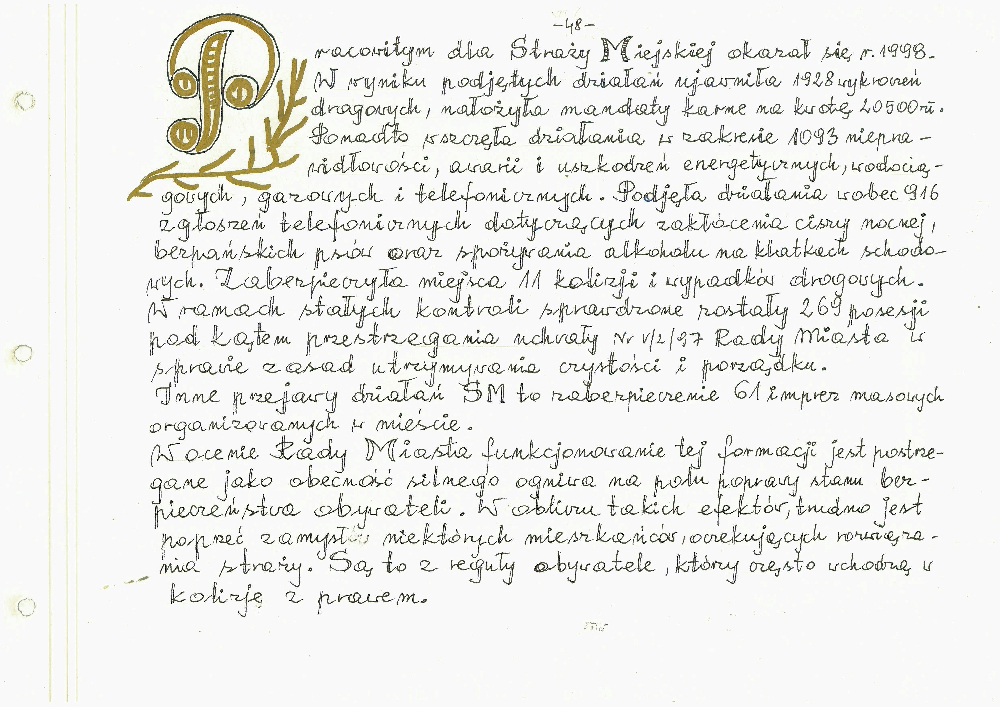 -48-
Pracowitym dla Straży Miejskiej okazał się r. 1998.
W wyniku podjętych działań ujawniła 1928 wykroczeń
drogowych, nałożyła mandaty karne na kwotę 20500 zł.
Ponadto wszczęła działania w zakresie 1093 niepra-
widłowości, awarii i uszkodzeń energetycznych, wodocią-
gowych, gazowych i telefonicznych. Podjęła działania wobec 916
zgłoszeń telefonicznych dotyczących zakłócenia ciszy nocnej,
bezpańskich psów oraz spożywania alkoholu na klatkach schodo-
wych. Zabezpieczyła miejsca 11 kolizji i wypadków drogowych.
W ramach stałych kontroli sprawdzone zostały 269 posesji
pod kątem przestrzegania uchwały Nr V/2/97 Rady Miasta w
sprawie zasad utrzymywania czystości i porządku.
Inne przejawy działań SM to zabezpieczenie 61 imprez masowych
organizowanych w mieście.
W ocenie Rady Miasta funkcjonowanie tej formacji jest postrze-
gane jako obecność silnego ogniwa na polu poprawy stanu bez-
pieczeństwa obywateli. W obliczu takich efektów, trudno jest
poprzeć zamysłów niektórych mieszkańców, oczekujących rozwiąza-
nia straży. Są to z reguły obywatele, którzy często wchodzą w
kolizję z prawem.